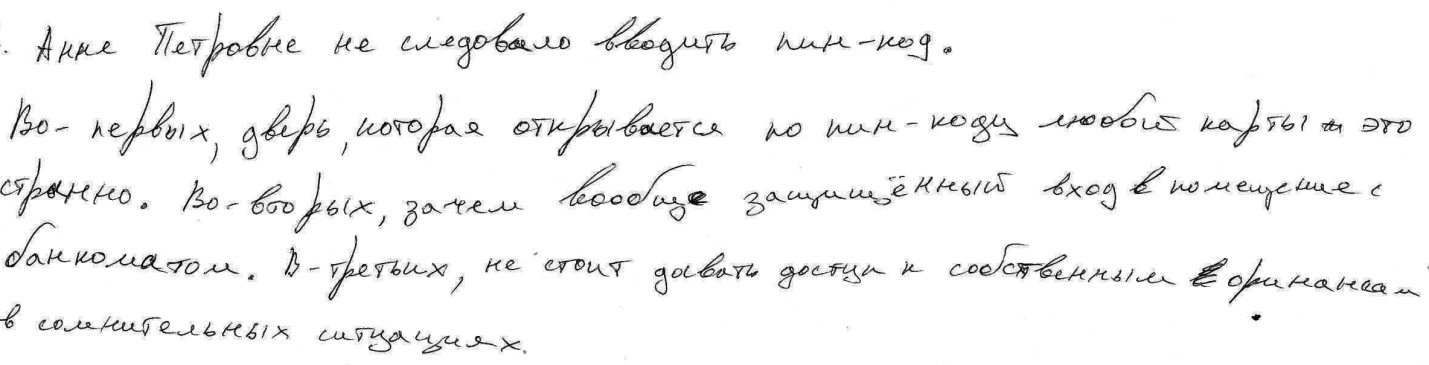 . Анне Петровне не следовало вводить пин-код.
Во-первых, дверь, которая открывается по пин-коду любой карты это
странно. Во-вторых, зачем вообще защищённый вход в помещение с
банкоматом. В-третьих, не стоит давать доступ к собственным финансам
в сомнительных ситуациях.